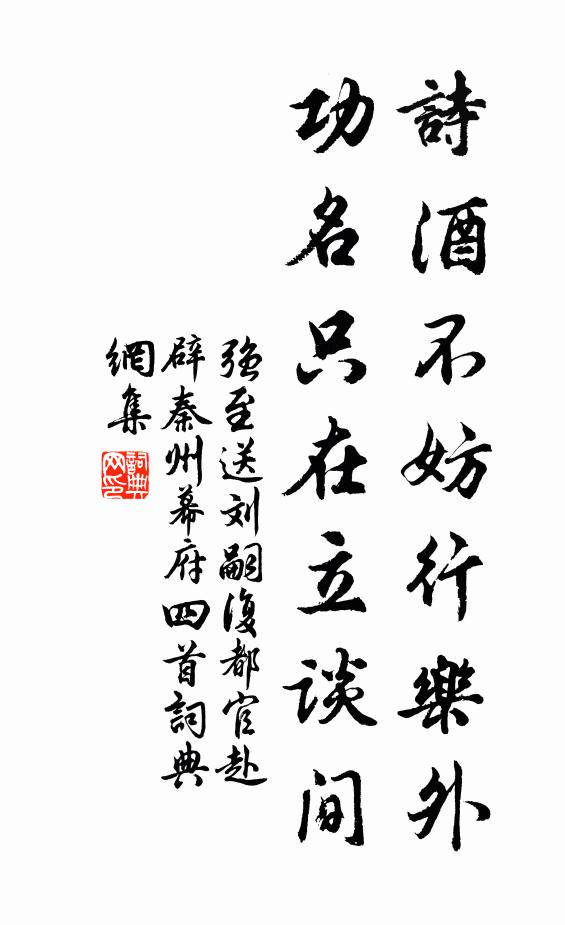 詩酒不妨行樂外
功名只在立談间
强至送刘嗣復都官赴
辟秦州幕府四首詞典
網集
詞典
网印